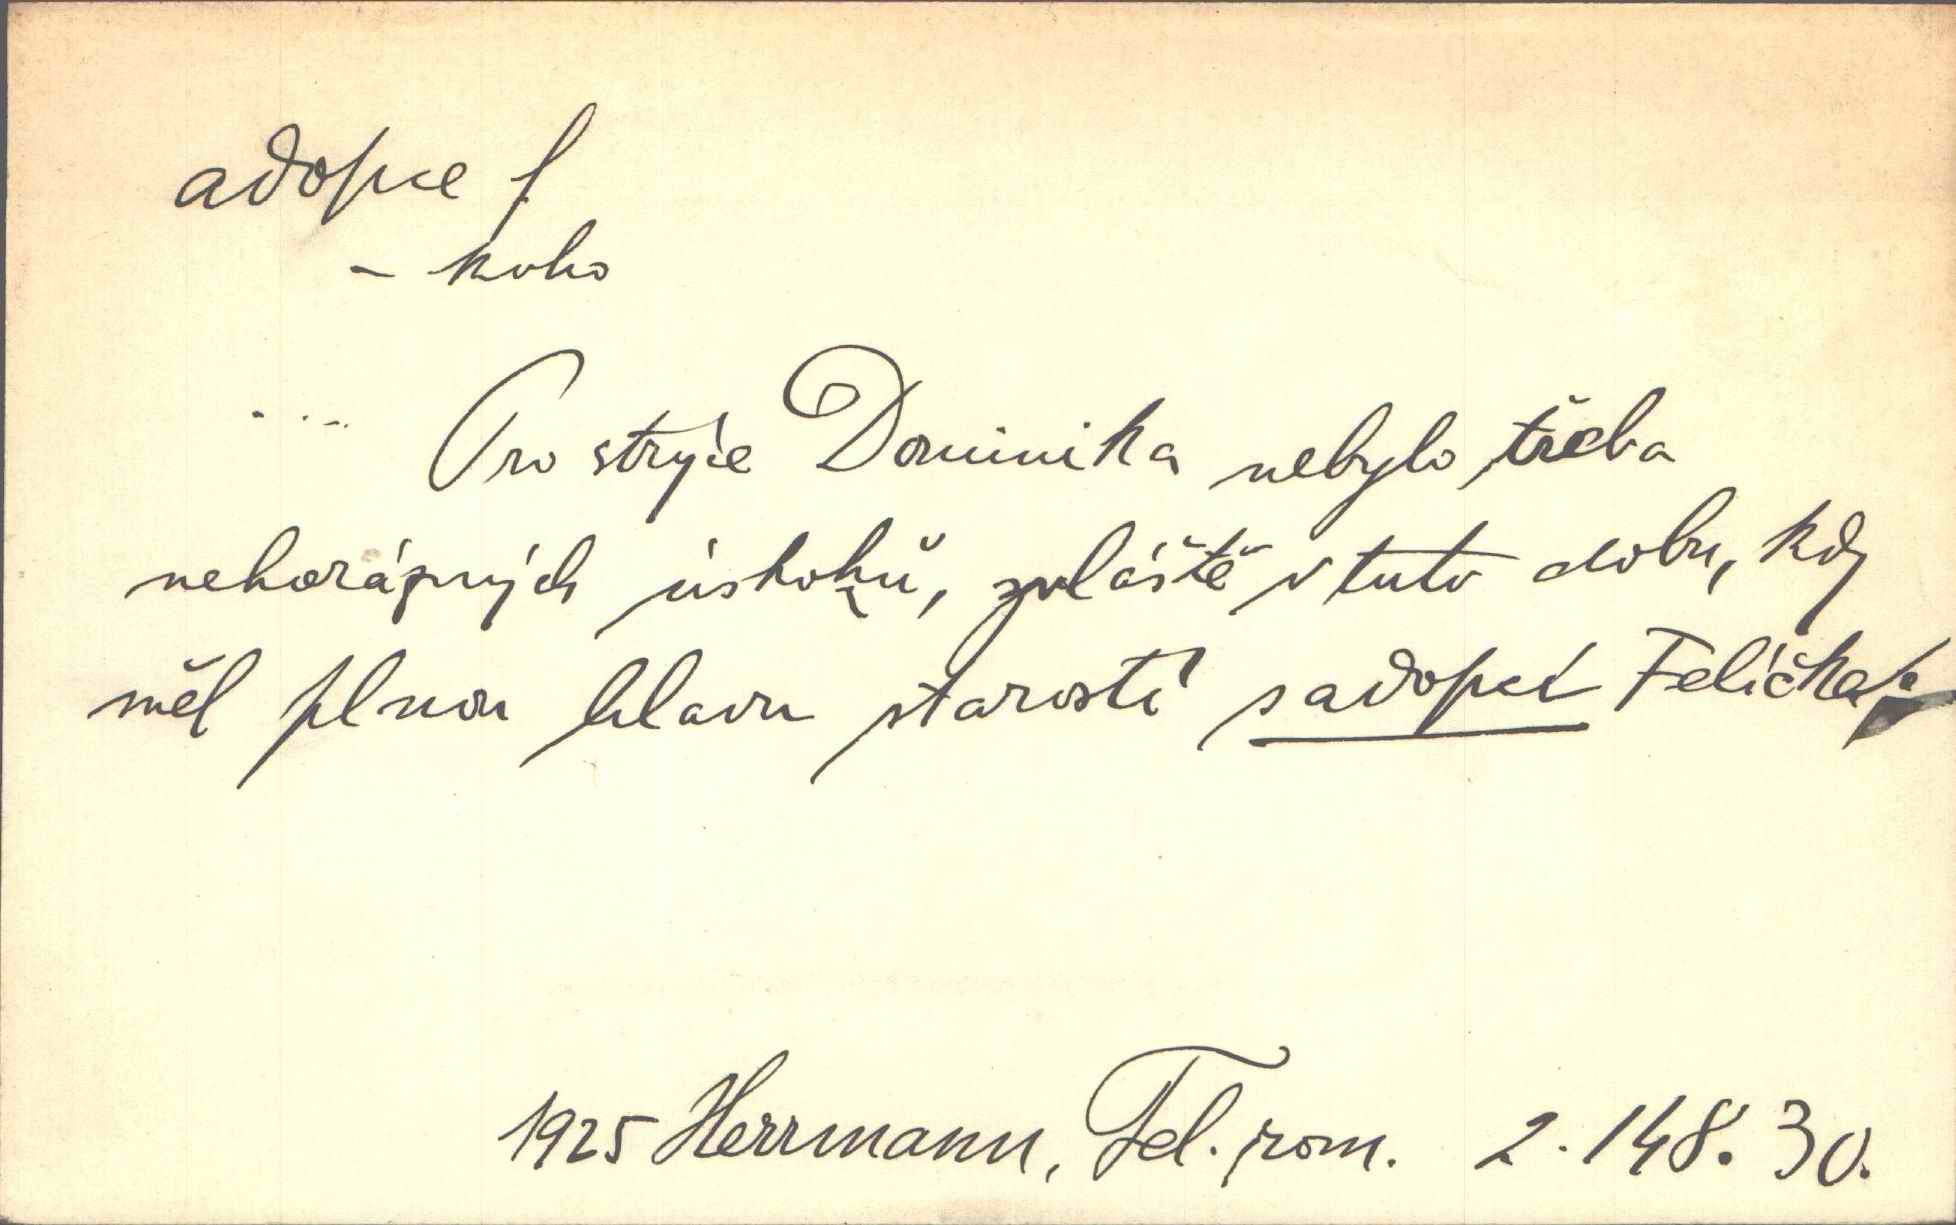 adopce f.
– koho
.... Pro strýce Dominika nebylo třeba
nehorázných úskoků, zvláště v tuto dobu, kdy
měl plnou hlavu starostí s adopcí Felíčka.
1925 Herrmann, Fel. rom. 2. 148. 30.